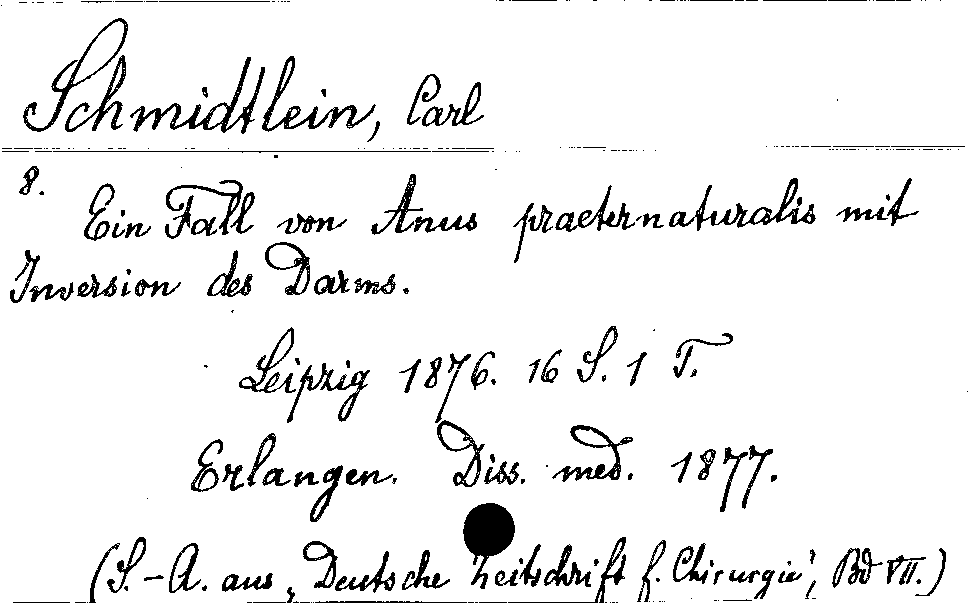 Schmidtlein, Carl
8.
Ein Fall von Anus praeternaturalis mit
Inversion des Darms.
Leipzig 1876. 16 S. 1 T.
Erlangen. Diss. med. 1877.
(S.-A. aus „Deutsche Zeitschrift f. Chirurgie“, Bd VII.)